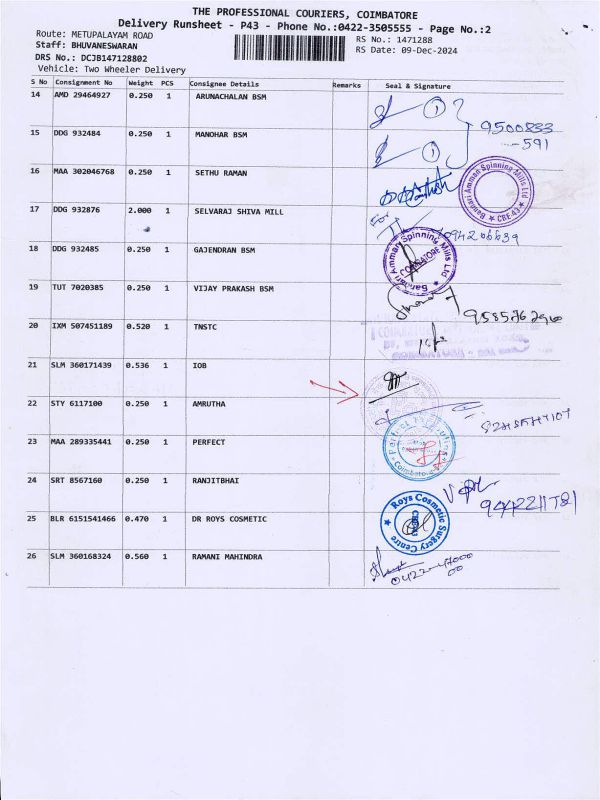 THE PROFESSIONAL COURIERS, COIMBATORE
Delivery Runsheet - P43 - Phone No.:0422-3505555 - Page No.:2
Route: METUPALAYAM ROAD
RS No.: 1471288
Staff: BHUVANESWARAN
RS Date: 09-Dec-2024
DRS No.: DCJB147128802
Vehicle: Two Wheeler Delivery
S No Consignment No Weight PCS Consignee Details Remarks Seal & Signature
14 AMD 29464927 0.250 1 ARUNACHALAN BSM
9500833
15 DDG 932484 0.250 1 MANOHAR BSM
-591
16 MAA 302046768 0.250 1 SETHU RAMAN
Bannari Amman Spinning Mills Ltd
CBE-43
17 DDG 932876 2.000 1 SELVARAJ SHIVA MILL
For
18 DDG 932485 0.250 1 GAJENDRAN BSM
Bannari Amman Spinning Mills Ltd
COIMBATORE
19 TUT 7020385 0.250 1 VIJAY PRAKASH BSM
20 IXM 507451189 0.520 1 TNSTC
21 SLM 360171439 0.536 1 IOB
22 STY 6117100 0.250 1 AMRUTHA
23 MAA 289335441 0.250 1 PERFECT
24 SRT 8567160 0.250 1 RANJITBHAI
25 BLR 6151541466 0.470 1 DR ROYS COSMETIC
Roys Cosmetic Surgery Centre
26 SLM 360168324 0.560 1 RAMANI MAHINDRA